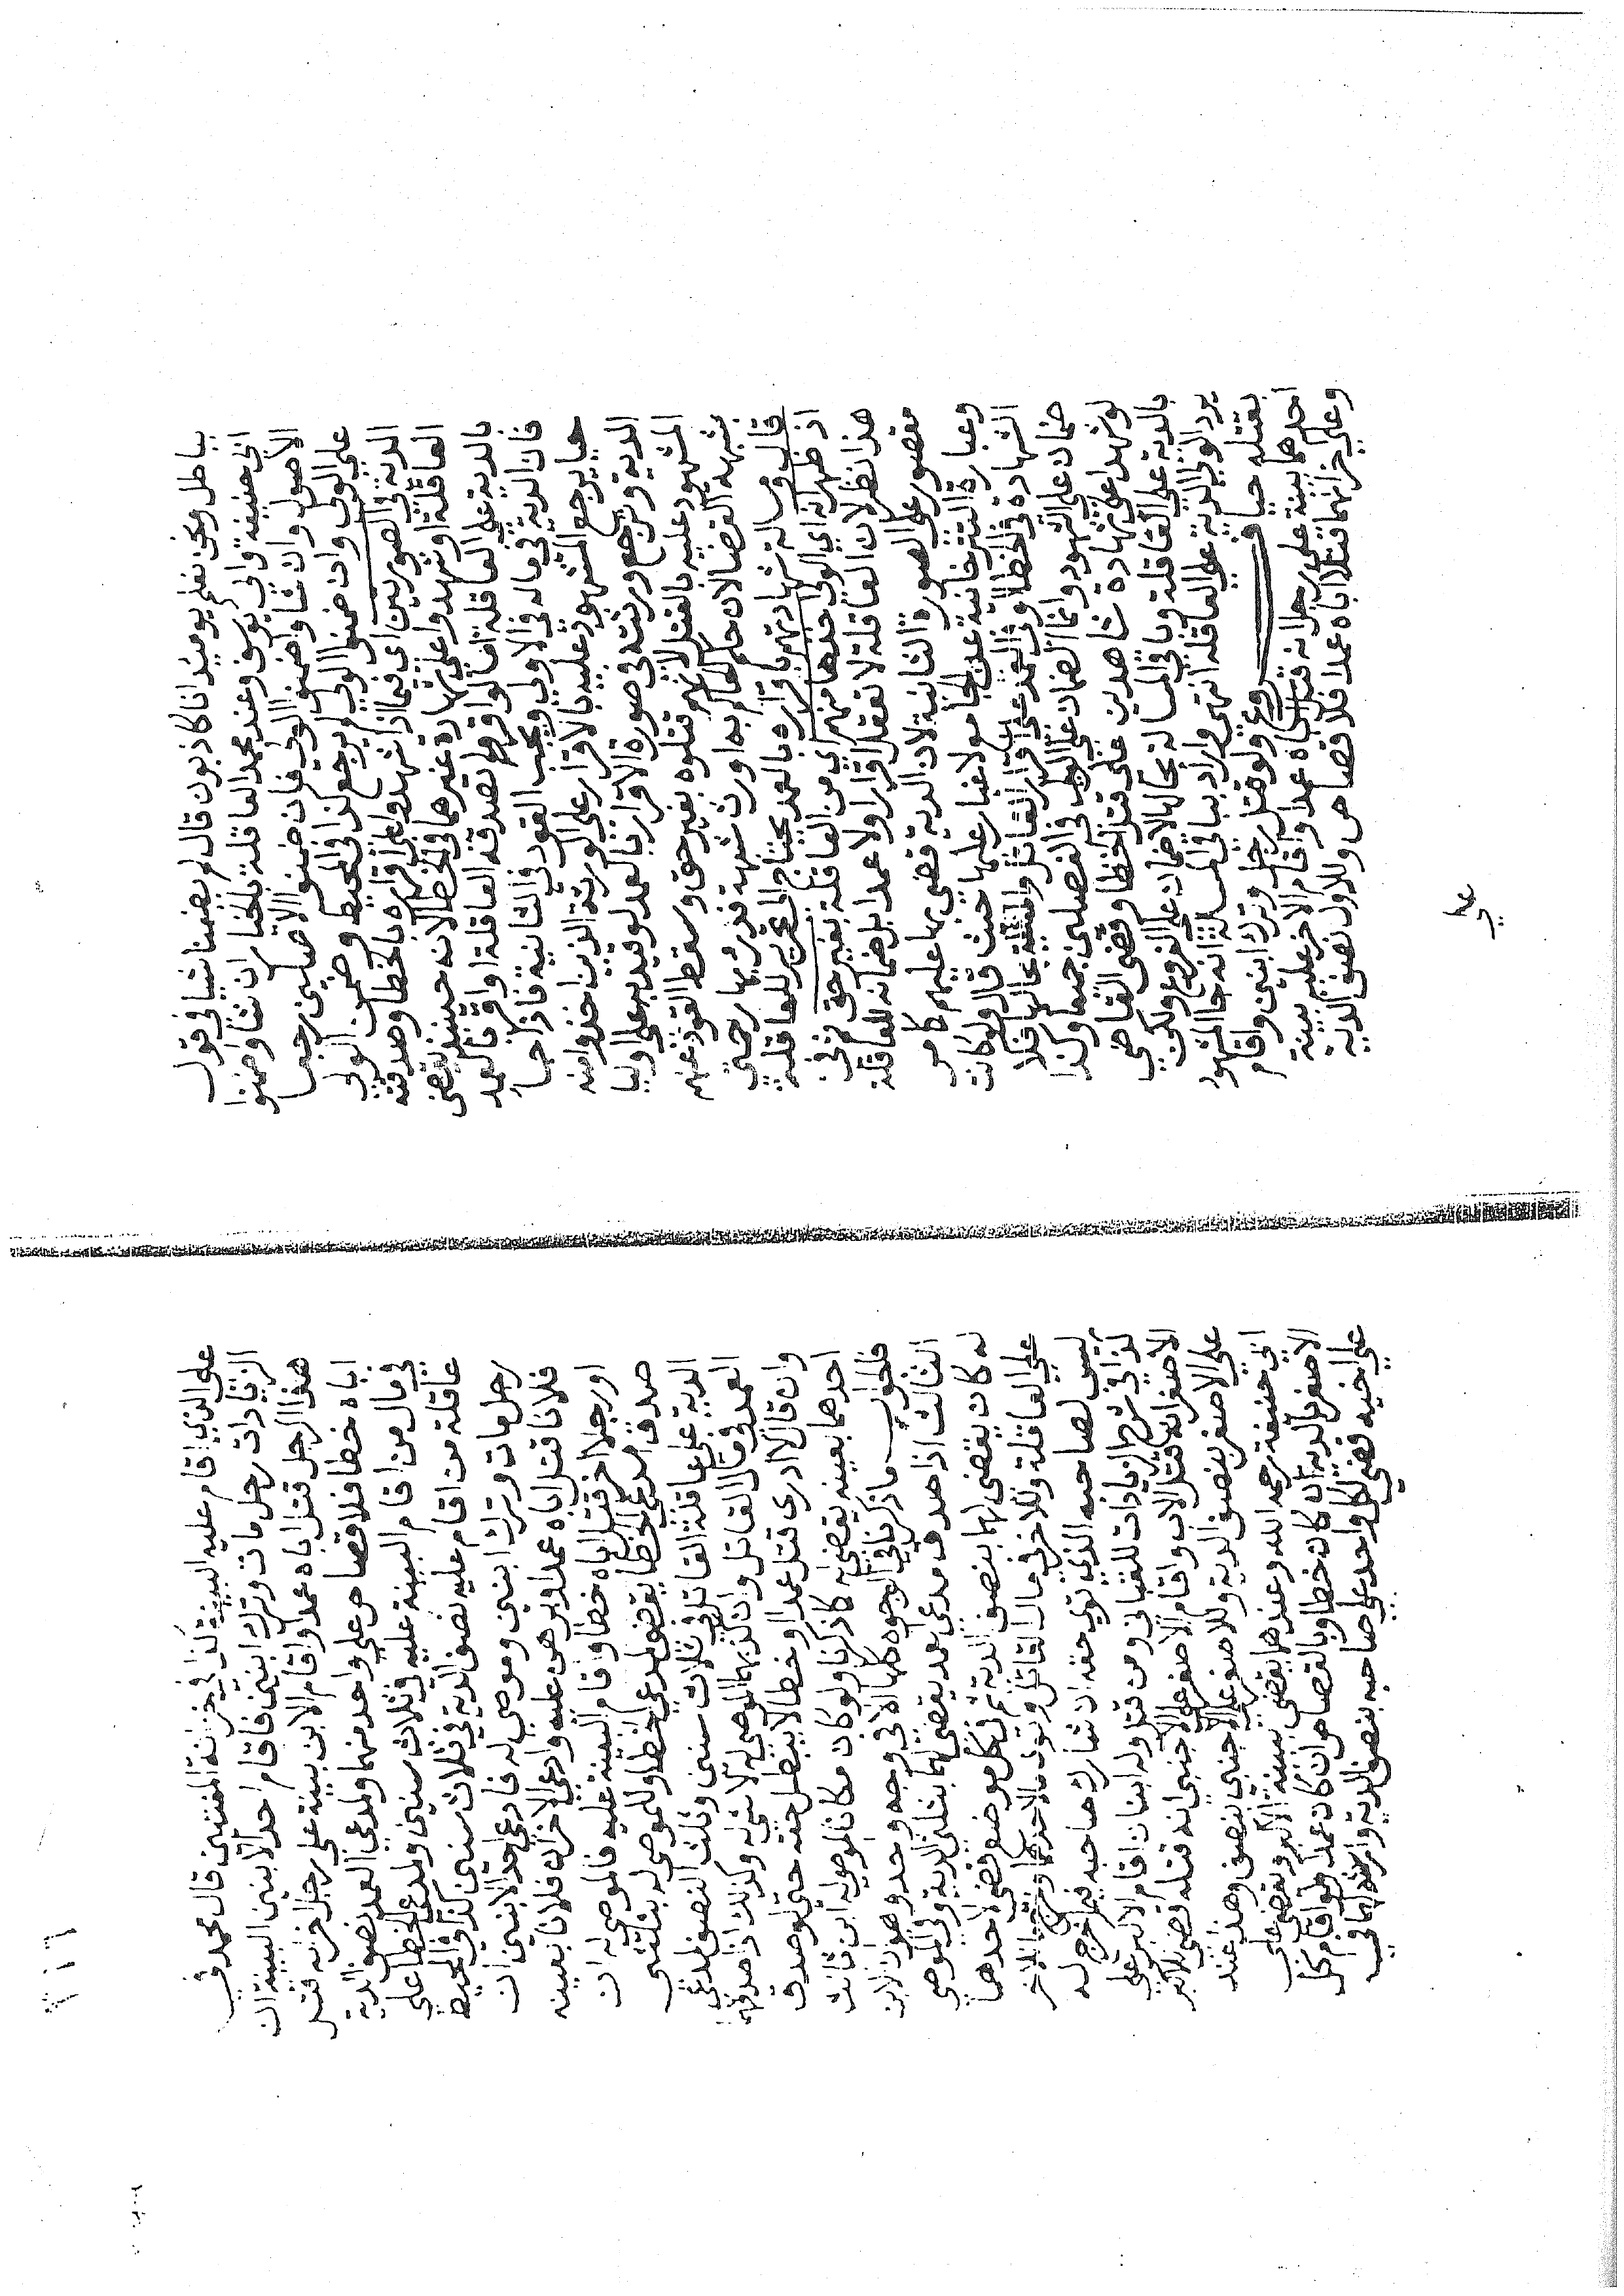 بباطل ونحن نعلم يوميذ انا كاذبون قال لم يضمنا شييا في قول
ابي حنيفه وابي يوسف وعند محمد العاقلة بالخيار ان شاؤا ضمنوا
الاصول وان شاؤا ضمنوا الولي فان ضمنوا الاصليين رجعا
علي الولي وان ضمنوا الولي لم يرجع كذا في المحيط وضمن الولي
الدية في الصورتين اي فيما اذا شهدوا علي اقراره بالخطا وصدقته
العاقلة او شهدوا علي شهادة غيرهما في الخطا لانه حينيذ يقضي
بالدية علي العاقلة اما لو اقر ولم تصدقه العاقلة او اقر بالعمد
فان الدية في ماله في الاولي ويجب القود في الثانية فاذا جا
حيا يرجع المشهود عليه بالاقرار علي الورثة الذين اخذوا منه
الدية وترجع ورثته في صورة الاقرار بالعمد لو قيد به علي اوليا
المشهود عليه بالقتل لانهم قتلوه بغير حق وسقط القود عنهم
بشبهه القضا لان حكم الحاكم به اورث شبهة
قال ومسالة شهادتهم باقراره بالعمد يحتاج الي تحرير للعاقلة
اذ ظهر انه اي الولي اخذها منهم اي من العاقلة بغير حق وفي
هذا نظر لان العاقلة لا تعقل اقرارا ولا عمدا بل ضمانه للعاقلة
مقصور علي الصورة الثانية لان الدية قضي بها عليهم كما مر
وعبارة التترخانية عن الجامع لا غبار عليها حيث قال ولو كانت
الشهادة في الخطا او في العمد علي اقرار القاتل والمسئلة بحالها فلا
ضمان علي الشهود وانما الضمان علي الولي في الفصلين جميعا وكذا
لو شهدا علي شهادة شاهدين علي قتل الخطا وقضي القاضي
بالدية علي العاقلة وباقي المسالة بحالها لا ضمان علي الفروع ولكن
يرد الولي الدية علي العاقلة انتهي واراد بباقي المسئلة انه جا المشهود
بقتله حيا فروع ولو قتل رجل وترك ابنين واقام
احدهما بينة علي رجل انه قتل اباه عمدا واقام الاخر عليه بينة
وعلي اخر انهما قتلا اباه عمدا فلا قصاص وللاول نصف الدية
علي
علي الذي اقام عليه البينة كذا في خزانة المفتين قال محمد في
الزيادات رجل مات وترك ابنين فاقام احد الابنين البينة ان
هذا الرجل قتل اباه عمدا واقام الابن بينة علي رجل اخر انه قتل
اباه خطا فلا قصاص علي واحد منهما ولمدعي العمد نصف الدية
في مال من اقام البينة عليه في ثلاث سنين ولمدعي الخطا علي
عاقلة من اقام عليه نصف الدية في ثلاث سنين كذا في المحيط
رجل مات وترك ابنين وموصي له فادعي احد الابنين ان
فلانا قتل اباه عمدا وبرهن عليه وادعي الاخر ان فلانا بعينه
او رجلا اخر قتل اباه خطا واقام البينة عليه فالموصي له ان
صدق مدعي الخطا يقضي لمدعي الخطا وللموصي له بثلثي
الدية علي عاقلة القاتل في ثلاث سنين وثلث النصف لمدعي
العمد في مال القاتل وان كذبهما الموصي له لا شي له وكذلك اذا صدقهما
وان قال لا ادري قتل عمدا او خطا لا يبطل حقه حتي لو صدق
احدهما بعينه يقضي له كما ذكرنا ولو كان مكان الموصي له ابن ثالث
فالجواب ما ذكرنا في الوجوه كلها الا في وجه واحد وهو ان الابن
الثالث اذا صدق مدعي العمد يقضي لهما بثلثي الدية وفي الموصي
له كان يقضي لهما بنصف الدية ثم في كل موضع قضي لاحدهما
علي العاقلة وللاخر في مال القاتل وتوي مال احدهما وخرج مال الاخر
ليس لصاحبه الذي توي حقه ان شارك صاحبه فيما خرج له
كذا في شرح الزيادات للعتابي ومن قتل وله ابنان اقام الاكبر علي
الاصغر انه قتل الاب واقام الاصغر علي الاجنبي انه قتله قضي للاكبر
علي الاصغر بنصف الدية وللاصغر علي الاجنبي بنصف وهذا عند
ابي حنيفة رحمه الله وعندهما يقضي ببينة الاكبر ويقضي علي
الاصغر بالدية ان كان خطا وبالقصاص ان كان عمدا ولو اقام كل
علي اخيه قضي لكل واحد علي صاحبه بنصف الدية